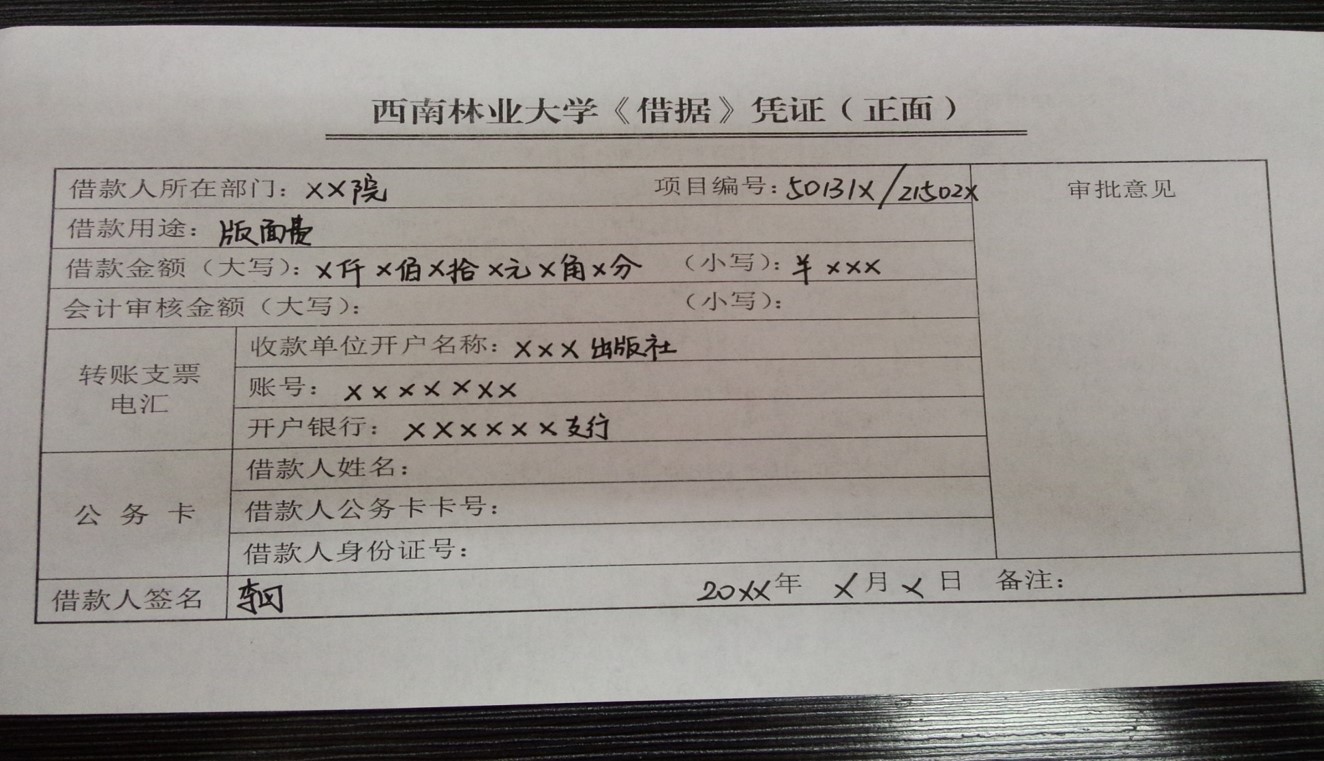 西南林业大学《借据》凭证（正面）
借款人所在部门：××院 项目编号：50131X/21502X 审批意见
借款用途：版面费
借款金额（大写）：×仟×佰×拾×元×角×分 （小写）：¥ ×××
会计审核金额（大写）： （小写）：
转账支票
电汇
收款单位开户名称：×××出版社
账号：×××××××
开户银行：××××××支行
公务卡
借款人姓名：
借款人公务卡卡号：
借款人身份证号：
借款人签名 20××年 ×月×日 备注：